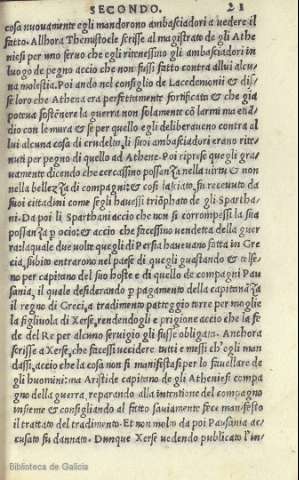 SECONDO. 21
cosa nuouamente egli mandorono ambasciadori a vedere il
fatto. Allhora Themistocle scrisse al magistrato de gli Athe
niesi per uno seruo che egli ritenessino gli ambasciadori in
luogo de pegno accio che non fussi fatto contra allui alcu,
na molestia. Poi ando nel consiglio de Lacedemonii & dis/
se loro che Athena era perfettamente fortificata & che gia
poteua sostenere la guerra non solamente cō larmi ma enã/
dio con le mura & se per quello egli deliberaueno contra al
lui alcuna cosa di crudelta, li suoi ambasciadori erano rite/
nuti per pegno di quello ad Athene. Poi riprese quegli gra/
uamente dicendo che cercassino possanza nella uirtu & non
nella bellezza di compagni: & cosi lasciato, fu receuuto da
suoi cittadini come se gli hauessi triōphato de gli Spartha/
ni. Da poi li Sparthani accio che non si corrompessi la sua
possanza p ocio: & accio che facessino uendetta della guer
ra: laquale due uolte quegli di Persia haueuano fatta in Gre
cia, subito entrorono nel paese di quegli guastando & elesse/
no per capitano del suo hoste e di quello de compagni Pau
sania, il quale desiderando p pagamento della capitanãza
il regno di Greci, a tradimento patteggio torre per moglie
la figliuola di Xerse, rendendogli e prigioni accio che la fe
de del Re per alcuno seruigio gli fusse obligata. Anchora
scrisse a Xerse, che facessi uccidere tutti e messi ch'egli man
dassi, accio che la cosa non si manifistassi per lo fauellare de
gli huomini: ma Aristide capitano de gli Atheniesi compa
gno della guerra, reparando alla intentione del compagno
insieme & consigliando al fatto sauiamente fece manifesto
il trattato del tradimento. Et non molto da poi Pausania ac/
cusato fu dannato. Dunque Xerse uedendo publicato l'in/
Biblioteca de Galicia